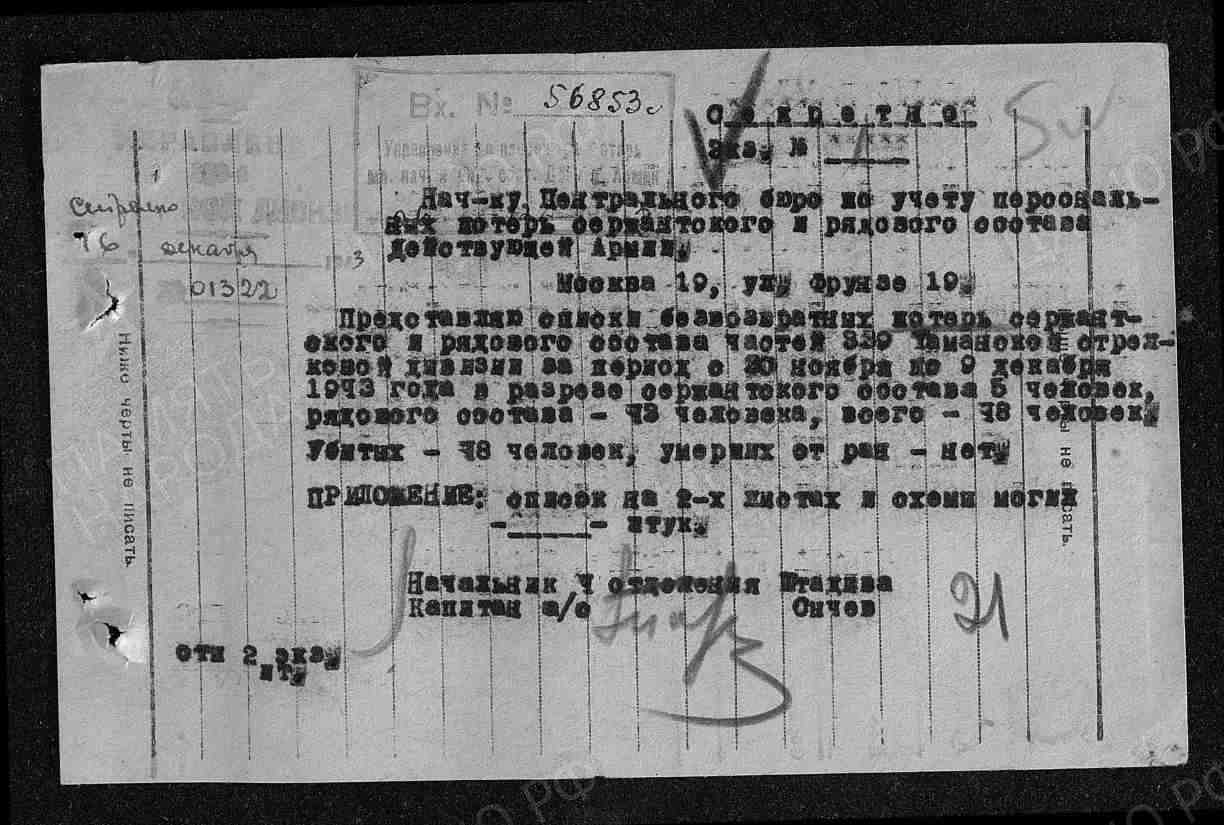 Вх. № 56853
Секретно
Экз. № 1
Секретно
16 декабря 1943
01322
Нач-ку Центрального бюро по учету персональ-
ных потерь сержантского и рядового состава
действующей Армии.
Москва 19, ул. Фрунзе 19.
Представляю списки безвозвратных потерь сержант-
ского и рядового состава частей 339 Таманской стрел-
ковой дивизии за период с 30 ноября по 9 декабря
1943 года в разрезе сержантского состава 5 человек,
рядового состава - 43 человека, всего - 48 человек.
Убитых - 48 человек, умерших от ран - нет.
ПРИЛОЖЕНИЕ: список на 2-х листах и схеми могил
-     - штук.
Начальник 4 отделения Штадива
Капитан а/с     Ончев
21
отп 2 экз.
пт.
Ниже черты не писать.
не писать.